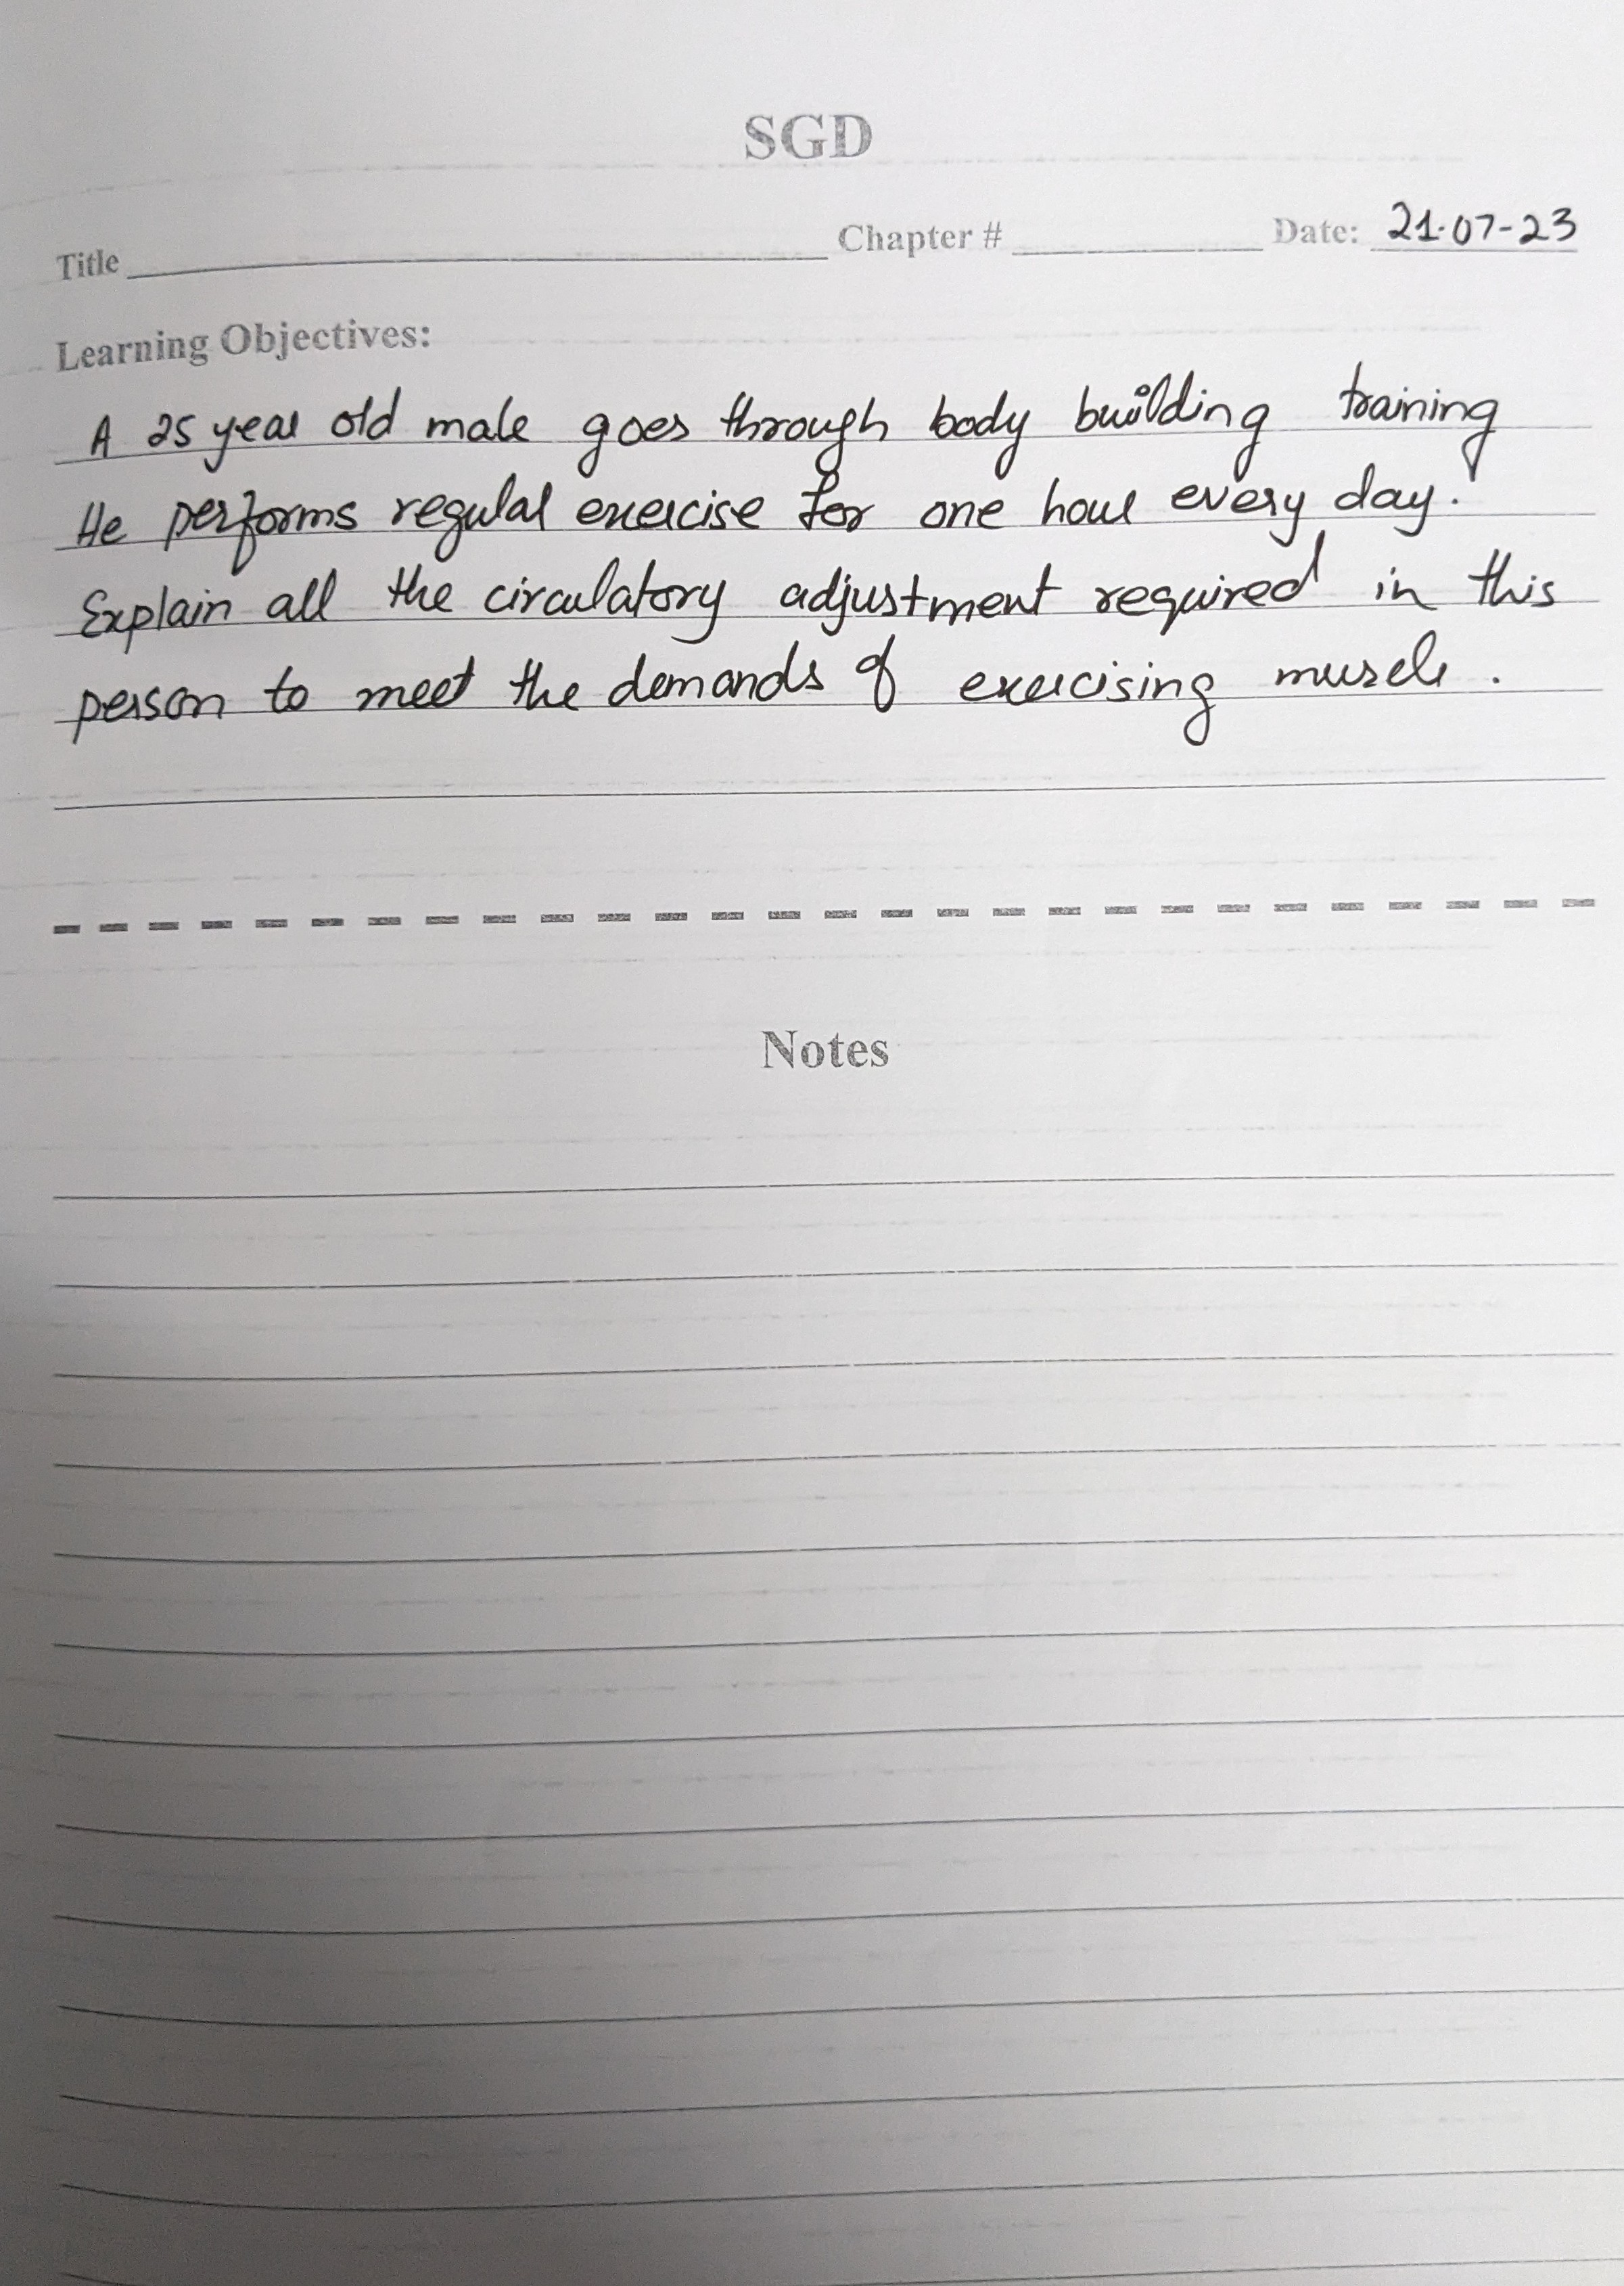 SGD
Title Chapter # Date: 21-07-23
Learning Objectives:
A 25 year old male goes through body building training
He performs regular exercise for one hour every day.
Explain all the circulatory adjustment required in this
person to meet the demands of exercising muscle.
Notes